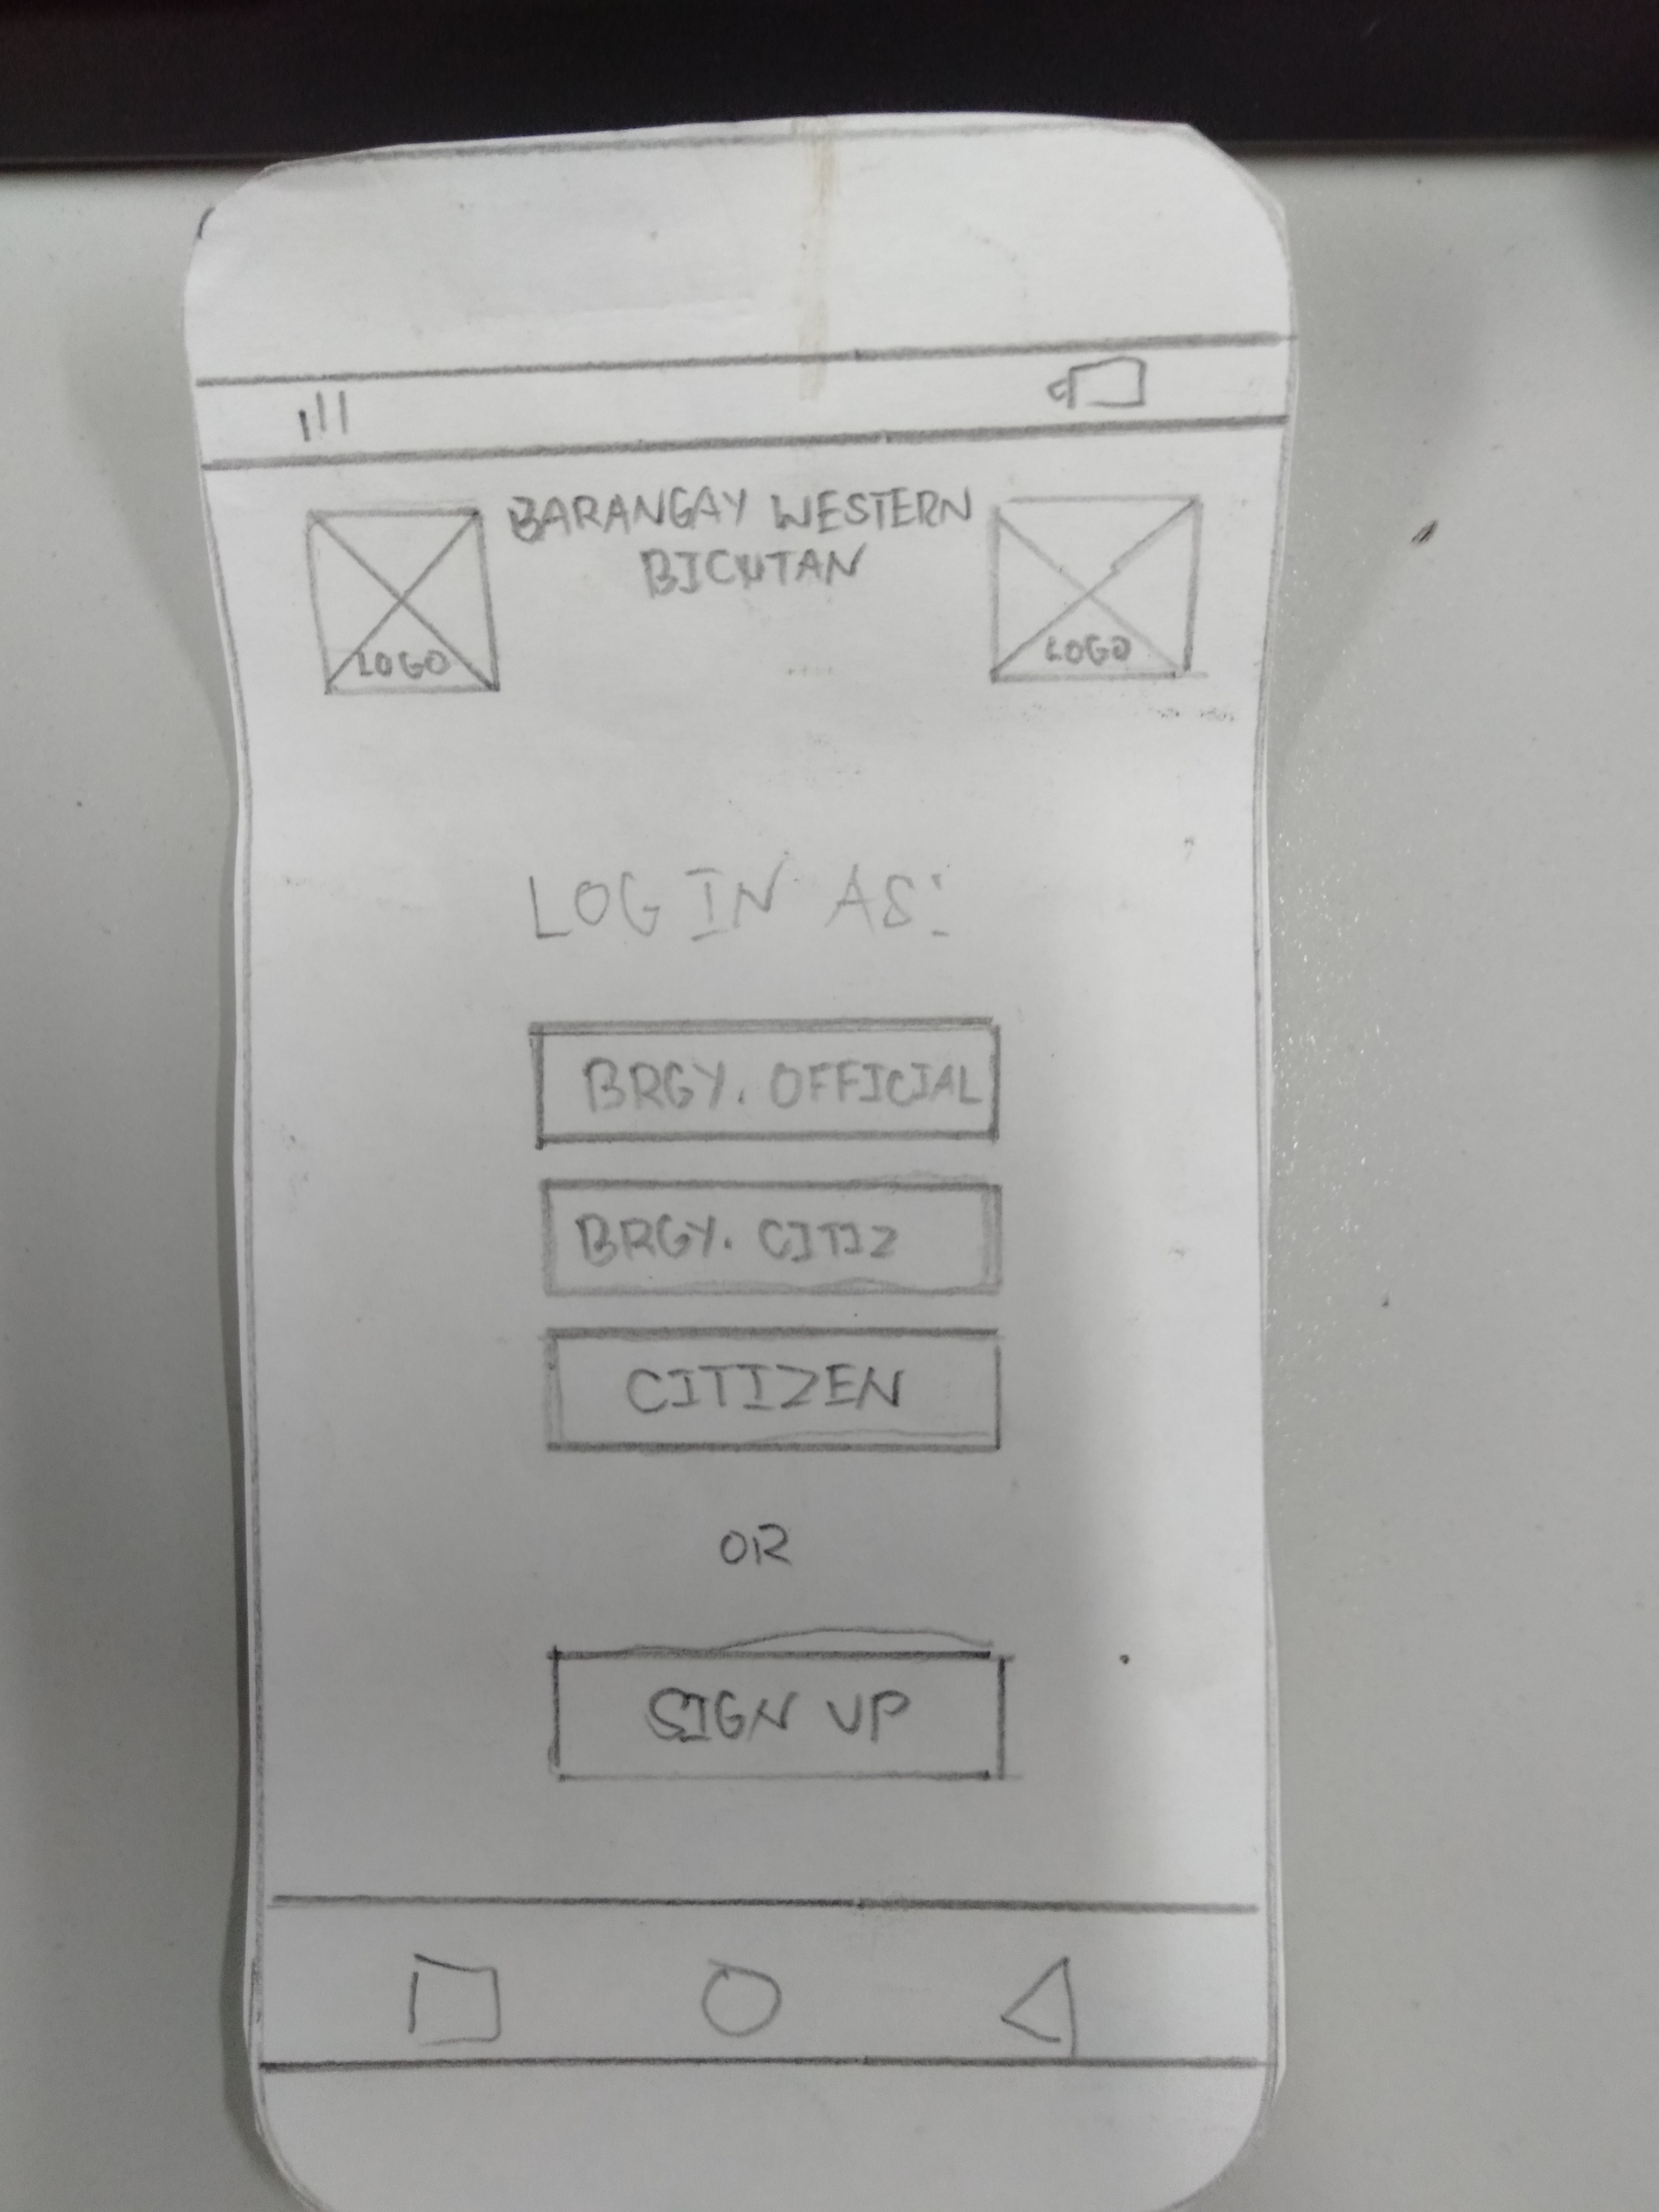 BARANGAY WESTERN
BICUTAN
LOGO
LOGO
LOG IN AS:
BRGY. OFFICIAL
BRGY. CITIZ
CITIZEN
OR
SIGN UP